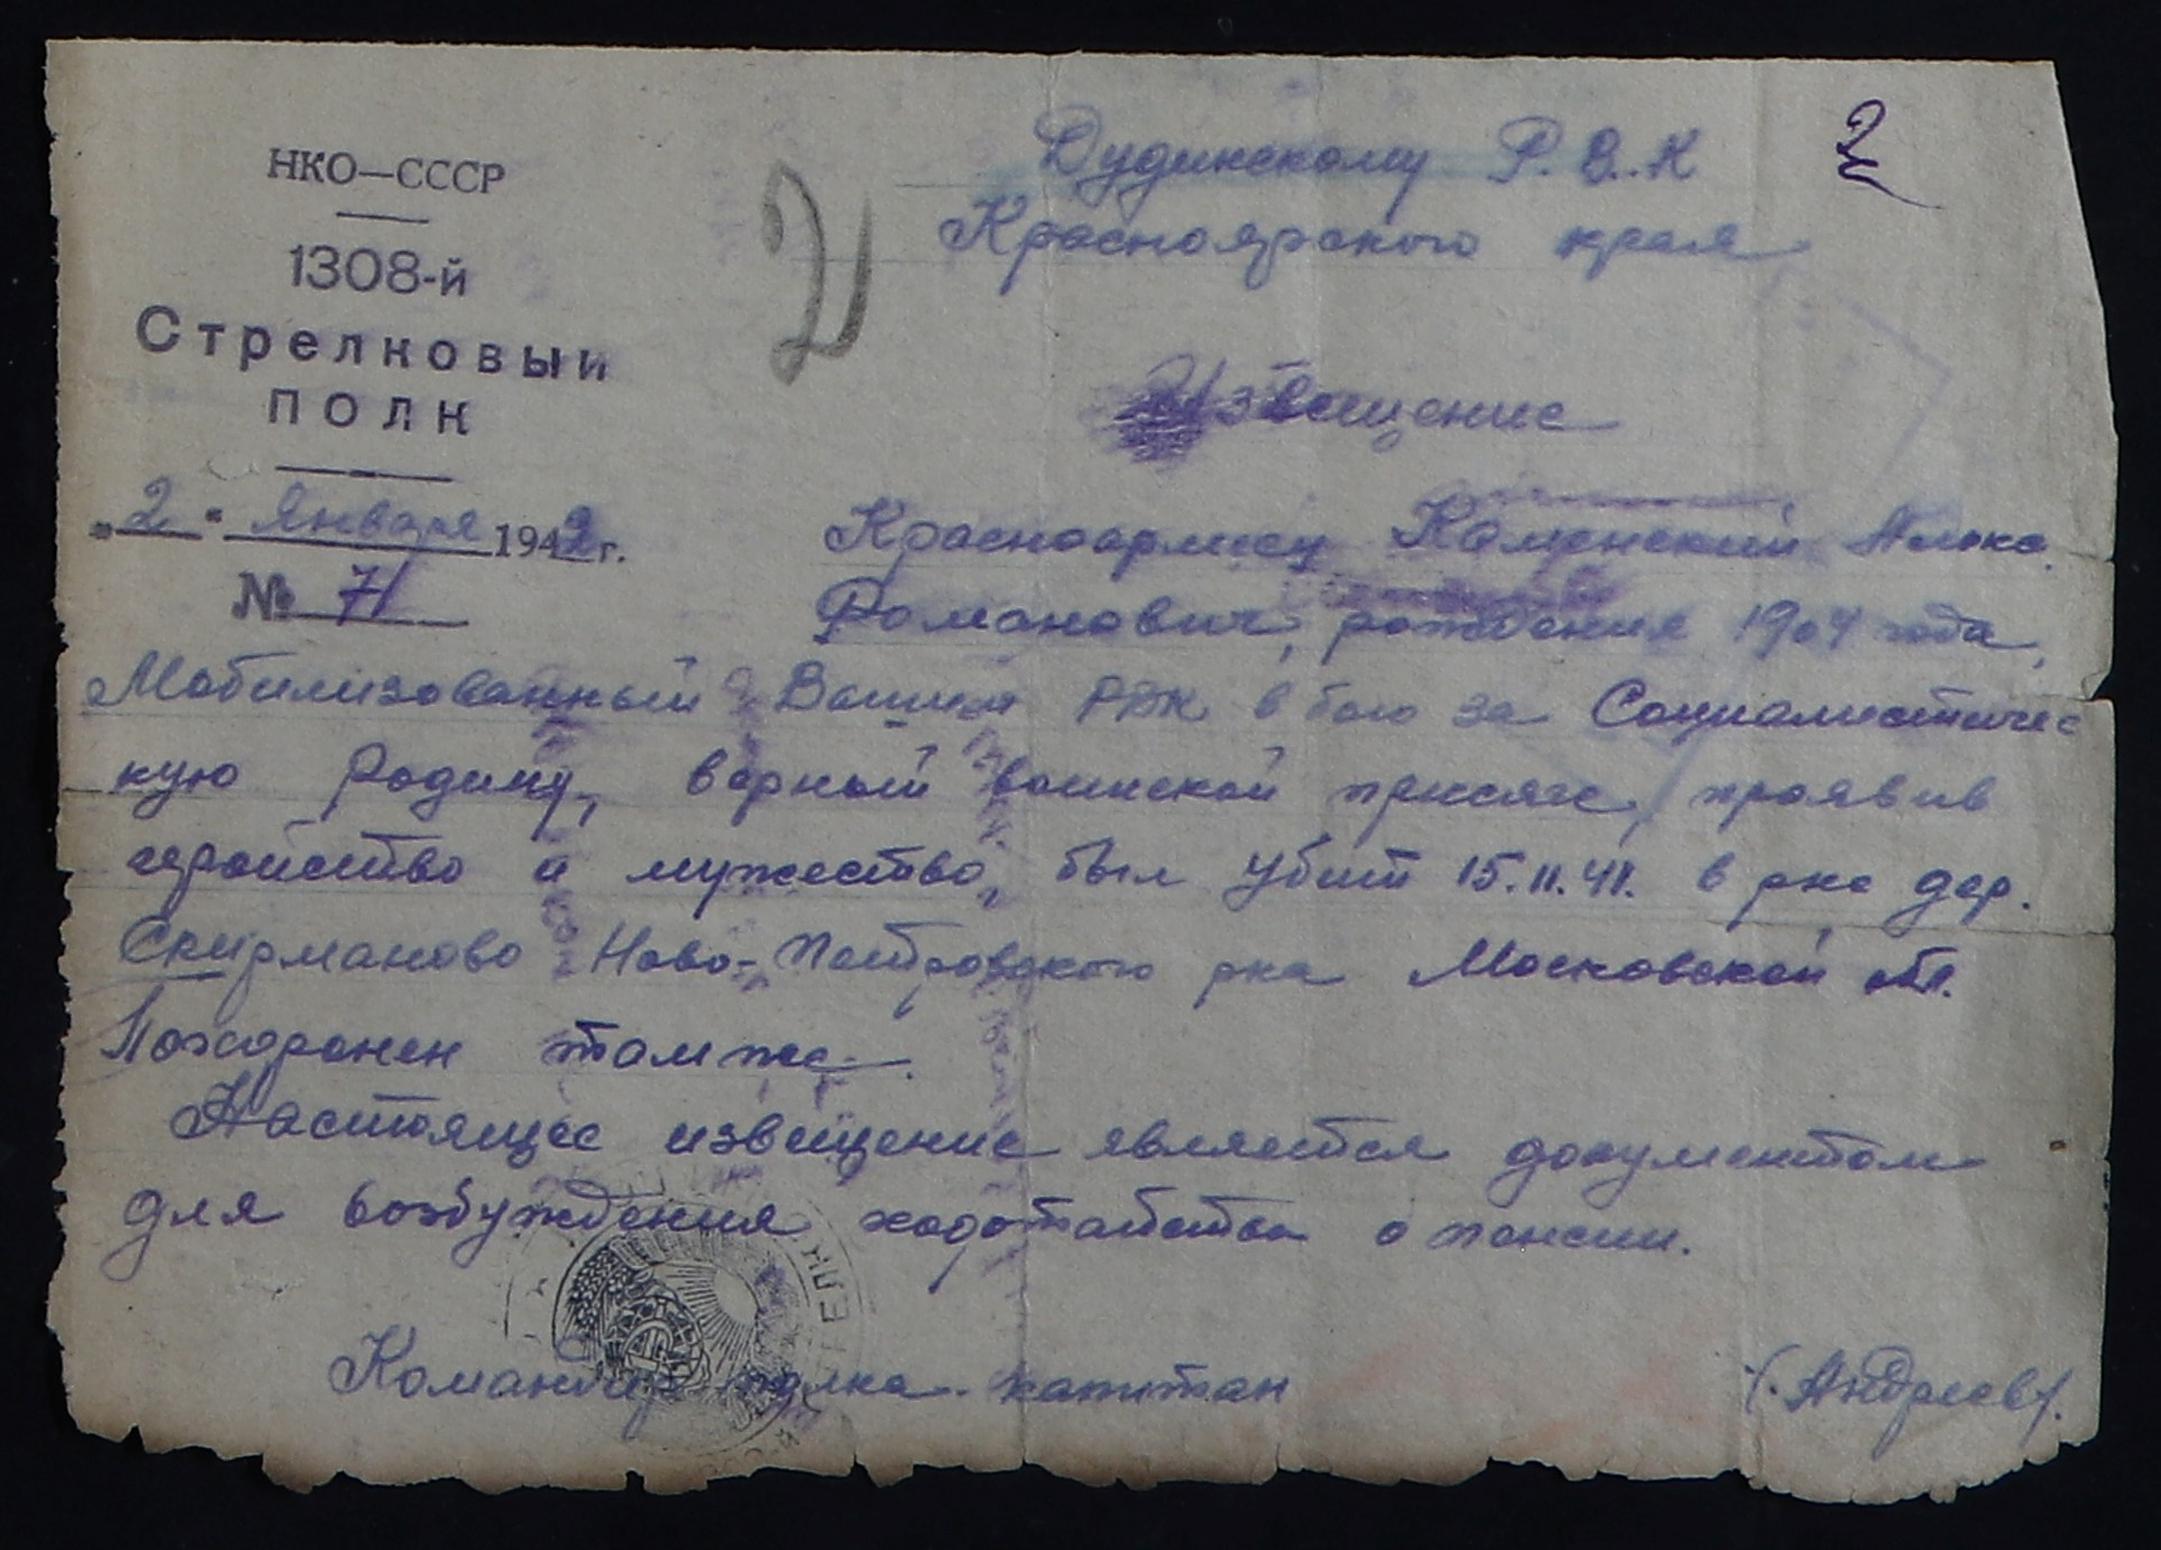 НКО—СССР
1308-й
Стрелковый
полк
"2" января 1942 г.
№ 71
2
Дудинскому Р.В.К
Красноярского края
Извещение
Красноармеец Каминский
Романович, рождения 1904 года,
Мобилизованный Вашим РВК в бою за Социалистичес
кую Родину, верный воинской присяге, проявив
геройство и мужество, был убит 15.11.41. в рне дер.
Скирманово Ново-Петровского рна Московской обл.
Похоронен там же.
Настоящее извещение является документом
для возбуждения ходотайства о пенсии.
Командир полка капитан (Андреев).